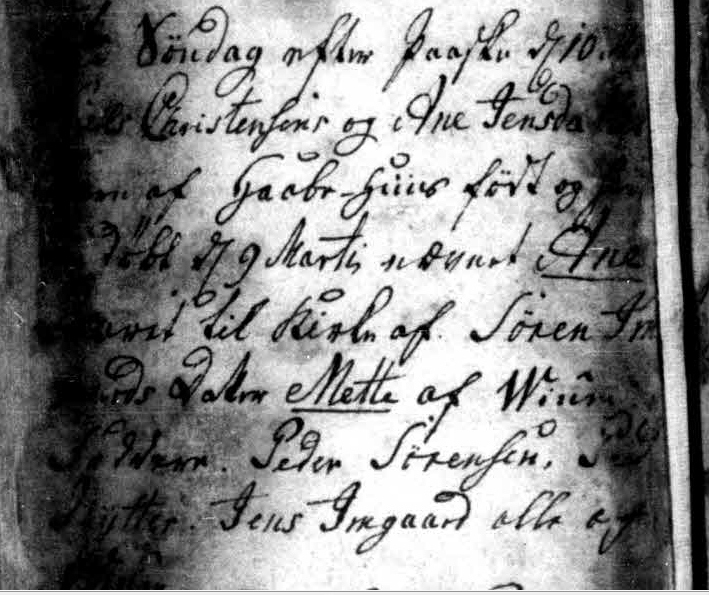 Söndag efter Paaske d 10
Christensens og Ane Jensda
af Haabe-Huus födt og
döbt d 9 Marti nævnet Ane
baret til Kirke af Sören Im
Daater Mette af Wium
Faddere. Peder Sörensen,
Rytter. Jens Imgaard alle af